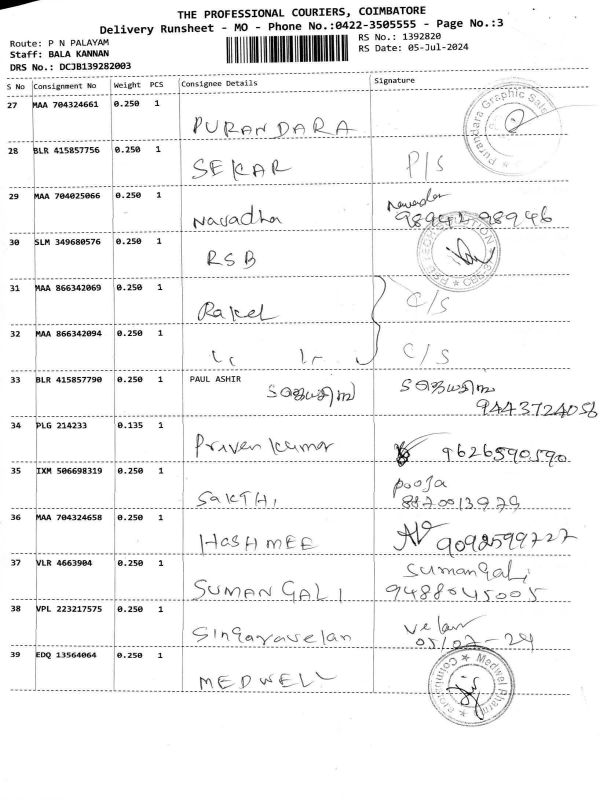 THE PROFESSIONAL COURIERS, COIMBATORE
Delivery Runsheet - MO - Phone No.:0422-3505555 - Page No.:3
Route: P N PALAYAM
RS No.: 1392820
Staff: BALA KANNAN
RS Date: 05-Jul-2024
DRS No.: DCJB139282003
S No Consignment No Weight PCS Consignee Details Signature
27 MAA 704324661 0.250 1
PURANDARA
Purandara Graphic
28 BLR 415857756 0.250 1
SEKAR P/S
29 MAA 704025066 0.250 1
Navadha 98942 98946
30 SLM 349680576 0.250 1
RSB
31 MAA 866342069 0.250 1
Rakel C/S
32 MAA 866342094 0.250 1
C/S
33 BLR 415857790 0.250 1 PAUL ASHIR
9443724056
34 PLG 214233 0.135 1
Praven kumar 9626590590
35 IXM 506698319 0.250 1
SAKTHI pooja
8870013979
36 MAA 704324658 0.250 1
HASHMEE 9092599727
37 VLR 4663904 0.250 1
SUMANGALI Sumangali
9488045005
38 VPL 223217575 0.250 1
Singaravelan velan
05/07-24
39 EDQ 13564064 0.250 1
MEDWELL